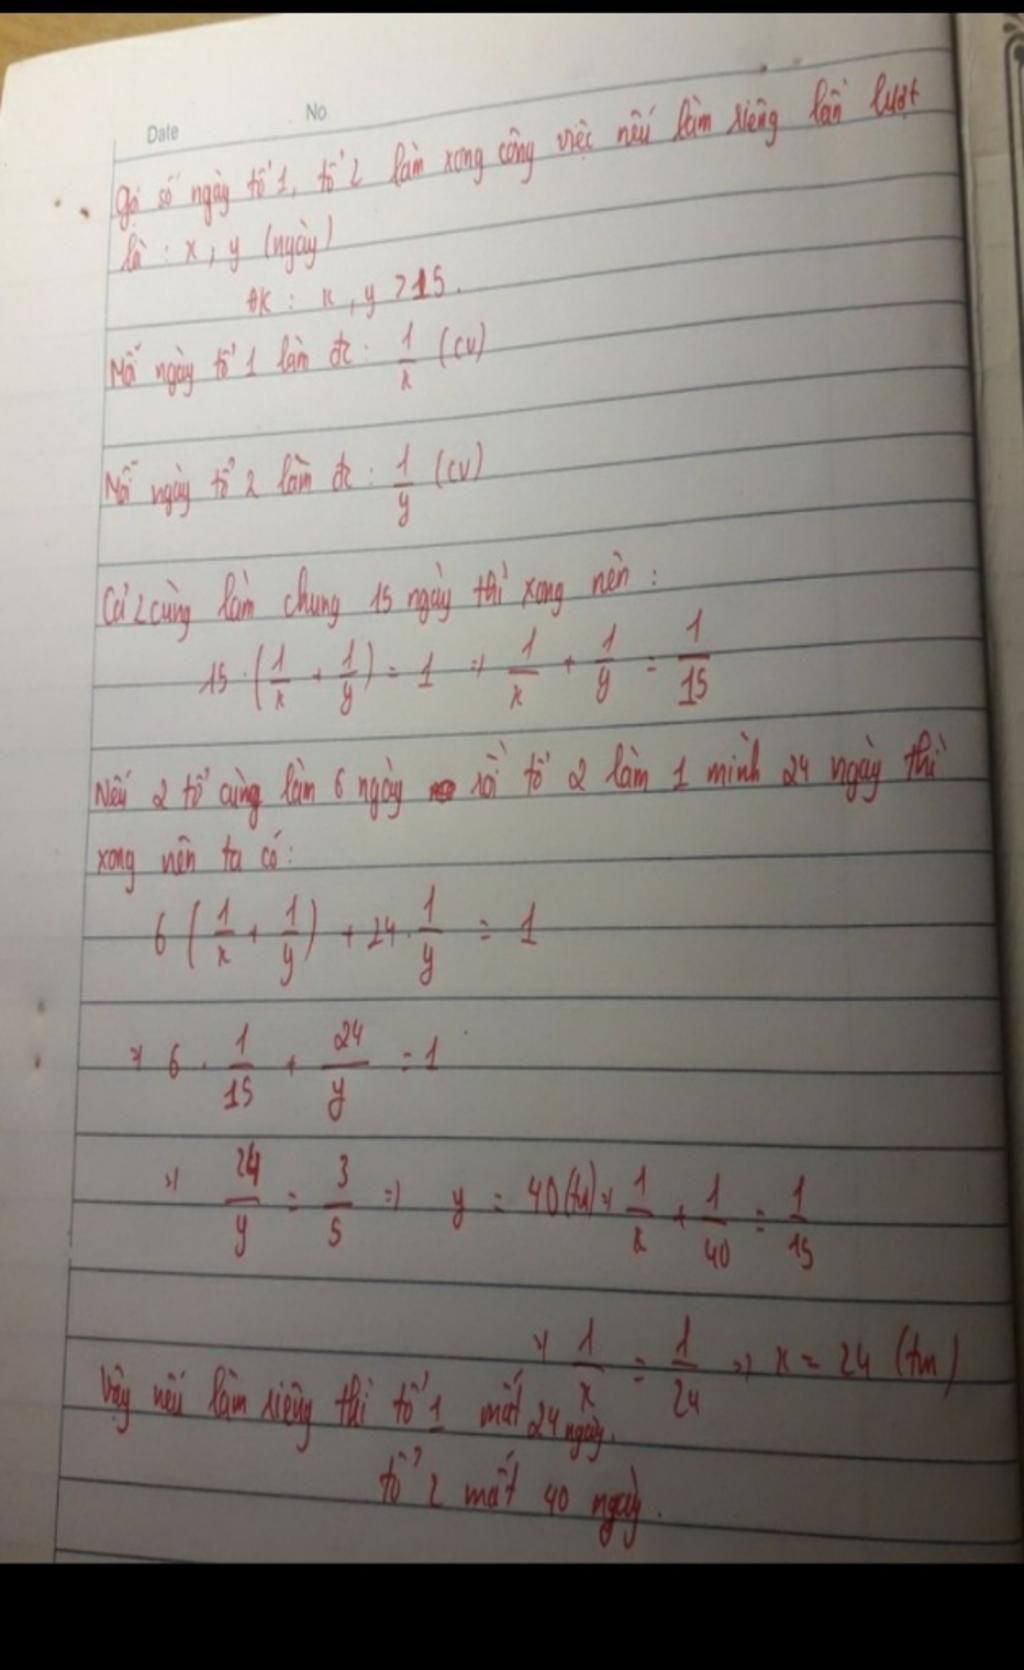 Date No
Gọi số ngày tổ 1, tổ 2 làm xong công việc nếu làm riêng lần lượt
là : x, y (ngày)
ĐK : x, y > 15.
Mỗi ngày tổ 1 làm đc : 1/x (cv)
Mỗi ngày tổ 2 làm đc : 1/y (cv)
Cả 2 cùng làm chung 15 ngày thì xong nên :
15 . (1/x + 1/y) = 1 => 1/x + 1/y = 1/15
Nếu 2 tổ cùng làm 6 ngày rồi tổ 2 làm 1 mình 24 ngày thì
xong nên ta có :
6 (1/x + 1/y) + 24 . 1/y = 1
=> 6 . 1/15 + 24/y = 1
=> 24/y = 3/5 => y = 40 (tm) => 1/x + 1/40 = 1/15
=> 1/x = 1/24 => x = 24 (tm)
Vậy nếu làm riêng thì tổ 1 mất 24 ngày.
tổ 2 mất 40 ngày.